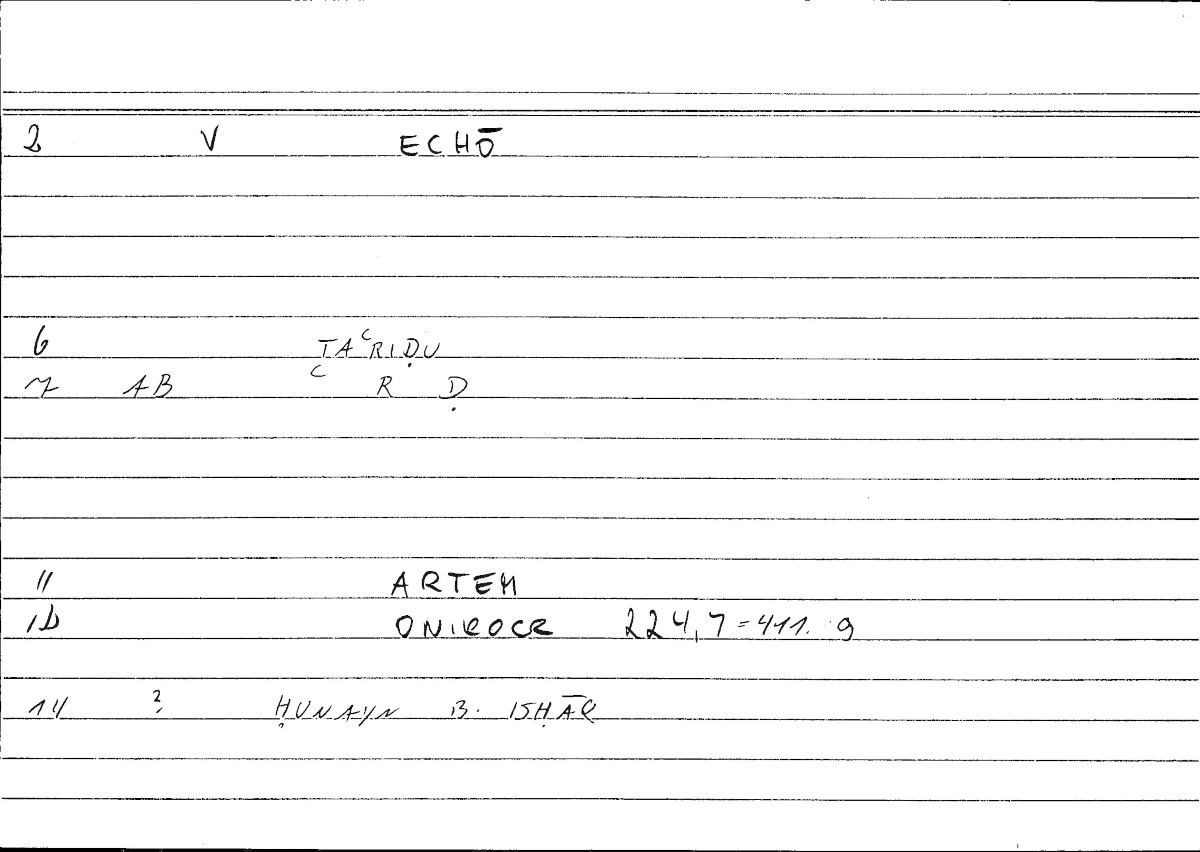 2 V ECHŌ
6 TAʿRIḌU
7 AB ʿ R Ḍ
11 ARTEM
12 ONIROCR 224,7 = 411. 9
14 ? ḤUNAYN B. ISḤĀQ